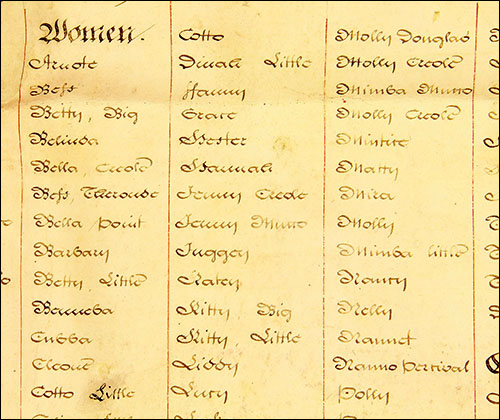 Women.
Arnote
Bess
Betty, Big
Belinda
Bella, Creole
Bess, Theroude
Bella Point
Barbary
Betty Little
Benneba
Cubba
Cleone
Cotto Little
Cotto
Dinah Little
Fanny
Grace
Hester
Hannah
Jenny Creole
Jenny Mimo
Juggey
Katey
Kitty, Big
Kitty, Little
Liddy
Lucy
Molly Douglas
Molly Creole
Mimba Munro
Molly Creole
Mintite
Matty
Mira
Molly
Mimba little
Nancy
Nelly
Nannet
Nanno Percival
Polly